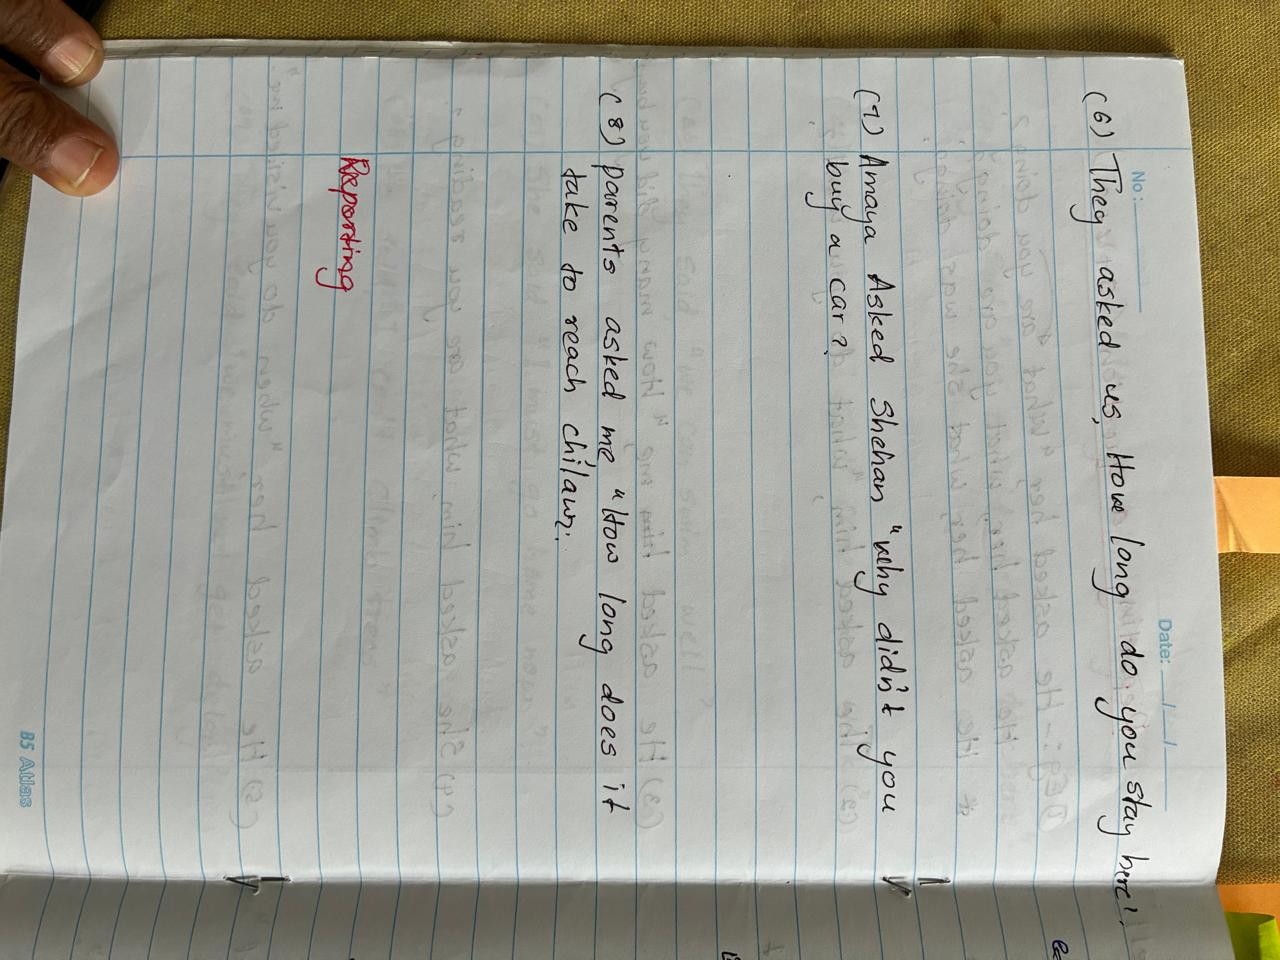 No:
Date: __/__/__
(6) They asked us, How long do you stay here?
(7) Amaya Asked Shehan "why didn't you
buy a car?
(8) parents asked me "How long does it
take to reach chilaw?
Reporting
B5 Atlas